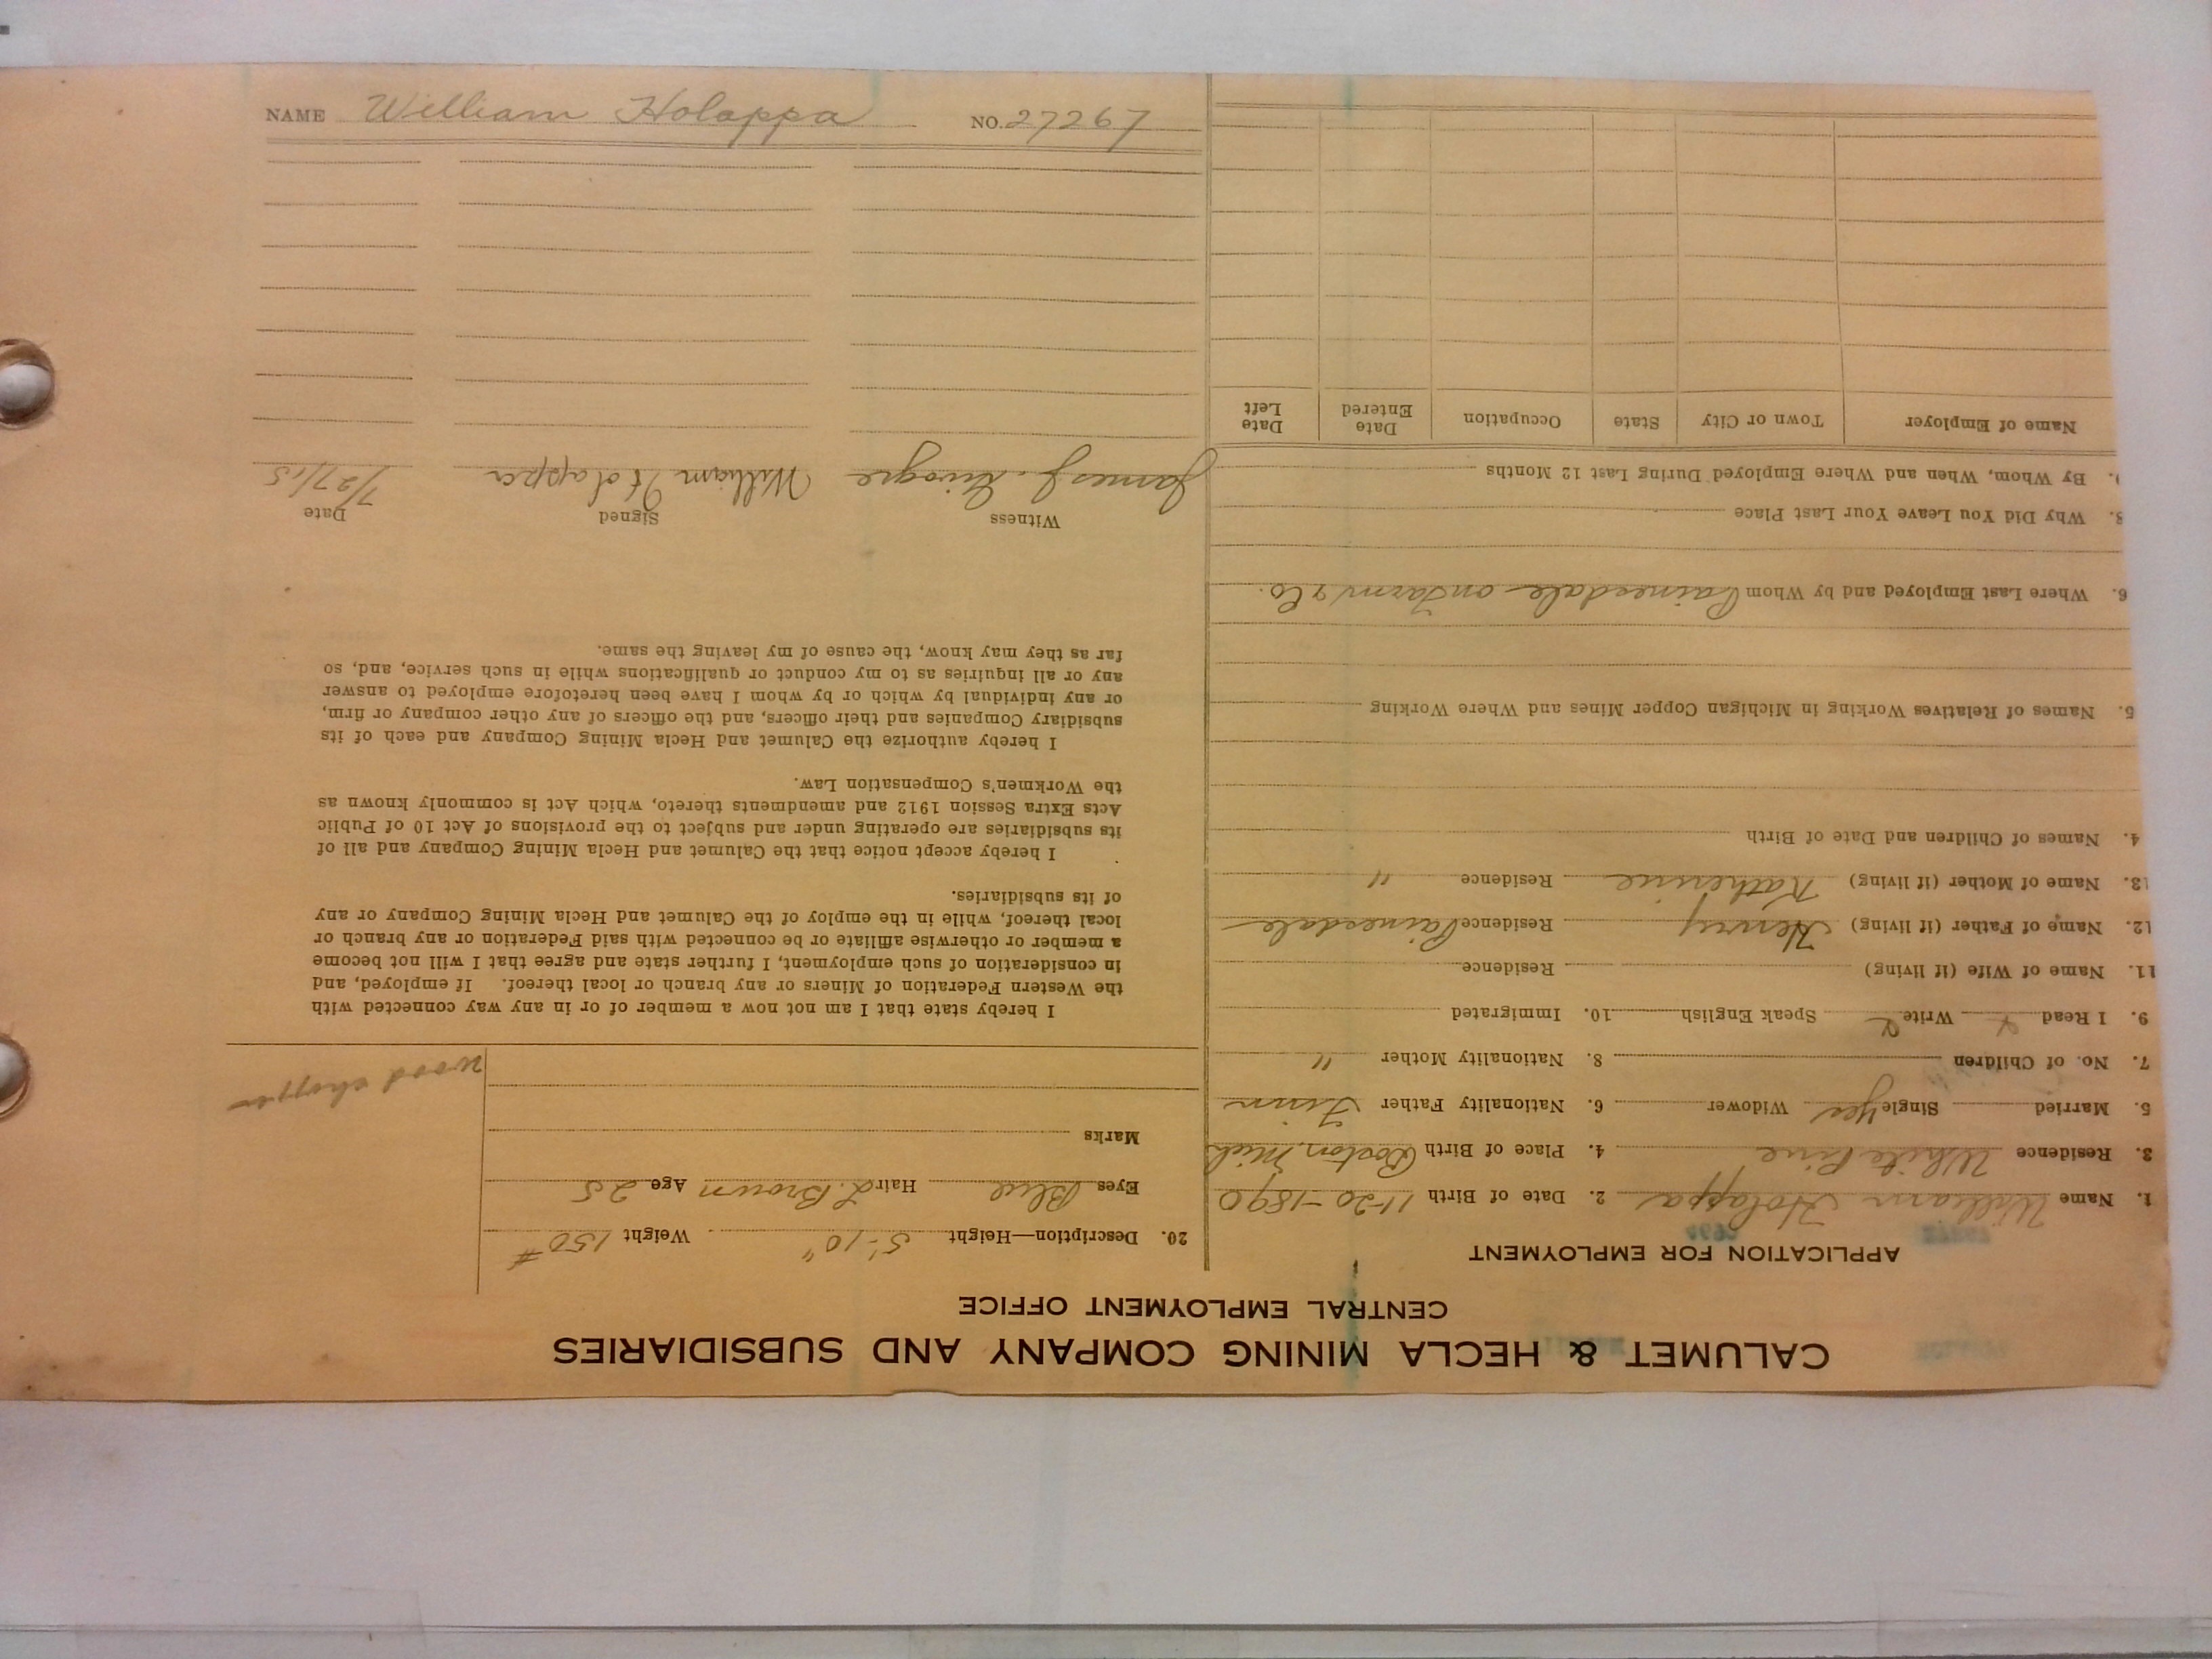 CALUMET & HECLA MINING COMPANY AND SUBSIDIARIES
CENTRAL EMPLOYMENT OFFICE
APPLICATION FOR EMPLOYMENT
1. Name William Holappa 2. Date of Birth 11-20-1890
3. Residence White Pine 4. Place of Birth Boston, Mich
5. Married Single Yes Widower 6. Nationality Father Finn
7. No. of Children 8. Nationality Mother "
9. I Read Write Speak English 10. Immigrated
11. Name of Wife (if living) Residence
12. Name of Father (if living) Henry Residence Painesdale
13. Name of Mother (if living) Katherine Residence "
4. Names of Children and Date of Birth
5. Names of Relatives Working in Michigan Copper Mines and Where Working
6. Where Last Employed and by Whom Painesdale on Farm & Co.
8. Why Did You Leave Your Last Place
9. By Whom, When and Where Employed During Last 12 Months
Name of Employer Town or City State Occupation Date Entered Date Left
20. Description—Height 5'-10" Weight 150 #
Eyes Blue Hair L. Brown Age 25
Marks
wood chopper
I hereby state that I am not now a member of or in any way connected with
the Western Federation of Miners or any branch or local thereof. If employed, and
in consideration of such employment, I further state and agree that I will not become
a member or otherwise affiliate or be connected with said Federation or any branch or
local thereof, while in the employ of the Calumet and Hecla Mining Company or any
of its subsidiaries.
I hereby accept notice that the Calumet and Hecla Mining Company and all of
its subsidiaries are operating under and subject to the provisions of Act 10 of Public
Acts Extra Session 1912 and amendments thereto, which Act is commonly known as
the Workmen's Compensation Law.
I hereby authorize the Calumet and Hecla Mining Company and each of its
subsidiary Companies and their officers, and the officers of any other company or firm,
or any individual by which or by whom I have been heretofore employed to answer
any or all inquiries as to my conduct or qualifications while in such service, and, so
far as they may know, the cause of my leaving the same.
Witness Signed Date
James J. William Holappa 7/27/15
NAME William Holappa NO. 27267